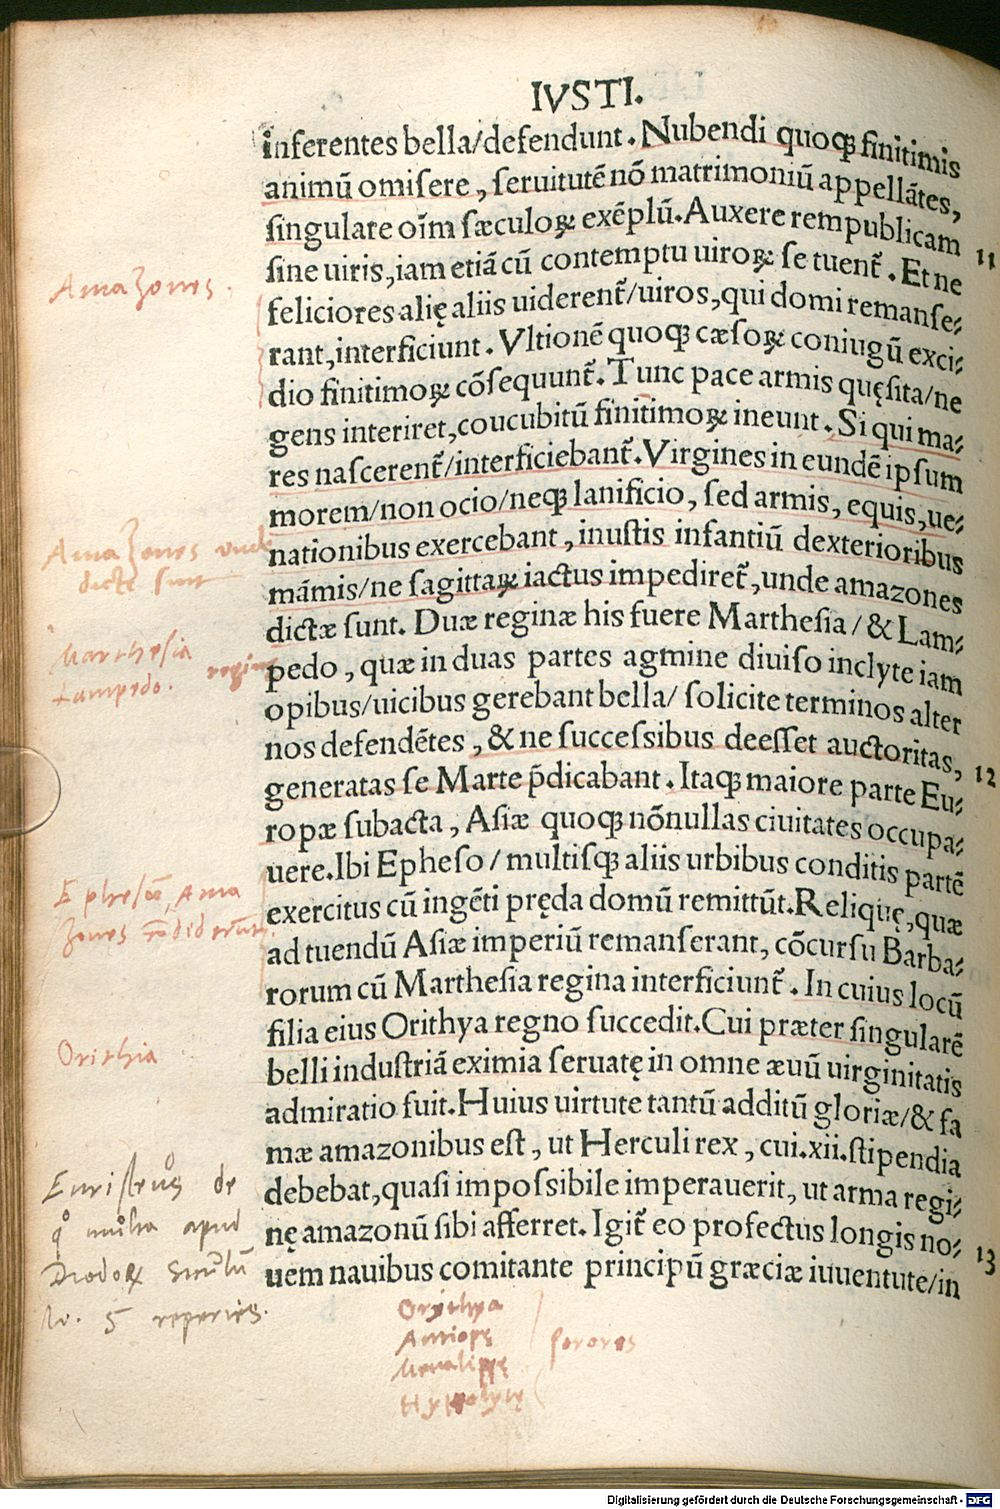 IVSTI.
inferentes bella/defendunt. Nubendi quoqꝫ finitimis
animū omisere, seruitutē nō matrimoniū appellātes,
singulare oīm sæculoꝝ exēplū. Auxere rempublicam
11
sine uiris, iam etiā cū contemptu uiroꝝ se tuent̄. Et ne
Amazones.
feliciores alię aliis uiderent̄/uiros, qui domi remanse⸗
rant, interficiunt. Vltionē quoqꝫ cæsoꝝ coniugū exci⸗
dio finitimoꝝ cōsequunt̄. Tunc pace armis quęsita/ne
gens interiret, coucubitū finitimoꝝ ineunt. Si qui ma⸗
res nascerent̄/interficiebant̄. Virgines in eundē ipsum
morem/non ocio/neqꝫ lanificio, sed armis, equis, ue⸗
nationibus exercebant, inustis infantiū dexterioribus
Amazones unde
dictę sunt
māmis/ne sagittaꝝ iactus impediret̄, unde amazones
dictæ sunt. Duæ reginæ his fuere Marthesia/& Lam⸗
Marthesia
Lampedo. reginę
pedo, quæ in duas partes agmine diuiso inclyte iam
opibus/uicibus gerebant bella/ solicite terminos alter
nos defendētes, & ne successibus deesset auctoritas,
12
generatas se Marte p̄dicabant. Itaqꝫ maiore parte Eu⸗
ropæ subacta, Asiæ quoqꝫ nōnullas ciuitates occupa⸗
uere. Ibi Epheso/ multisqꝫ aliis urbibus conditis partē
Ephesū Ama
zones cōdiderūt.
exercitus cū ingēti pręda domū remittūt. Reliquę, quæ
ad tuendū Asiæ imperiū remanserant, cōcursu Barba⸗
rorum cū Marthesia regina interficiunt̄. In cuius locū
filia eius Orithya regno succedit. Cui præter singularē
Orithia
belli industriā eximia seruatę in omne æuū uirginitatis
admiratio fuit. Huius uirtute tantū additū gloriæ/& fa
mæ amazonibus est, ut Herculi rex, cui .xii. stipendia
Euristeus de
debebat, quasi impossibile imperauerit, ut arma regi⸗
quo multa apud
nę amazonū sibi afferret. Igit̄ eo profectus longis no⸗
13
Diodoꝝ Siculū
uem nauibus comitante principū græciæ iuuentute/in
5 reperies.
Orithya
Antiopę
Menalippę
Hyppolytę
sorores
Digitalisierung gefördert durch die Deutsche Forschungsgemeinschaft - DFG